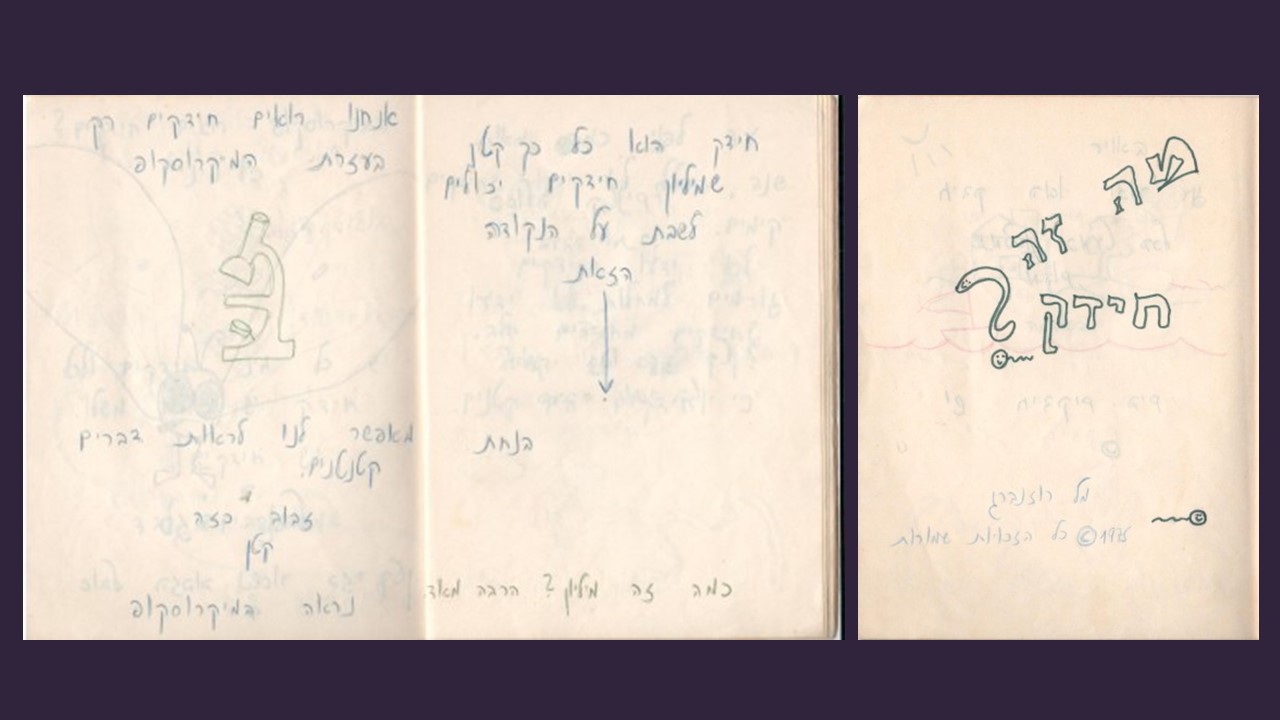 מה
זה
חידק?
מל רוזנברג
© 1975 כל הזכויות שמורות
חידק הוא כל כך קטן
שמיליון חידקים יכולים
לשבת על הנקודה
הזאת
בנחת
כמה זה מיליון? הרבה מאוד.
אנחנו רואים חידקים רק
בעזרת המיקרוסקופ
מאפשר לנו לראות דברים
קטנטנים.
זבוב כזה
קטן
נראה במיקרוסקופ